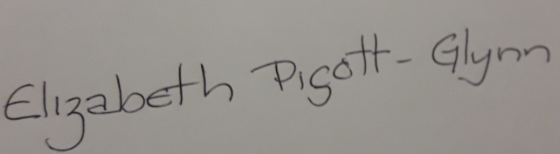 Elizabeth Pigott-Glynn